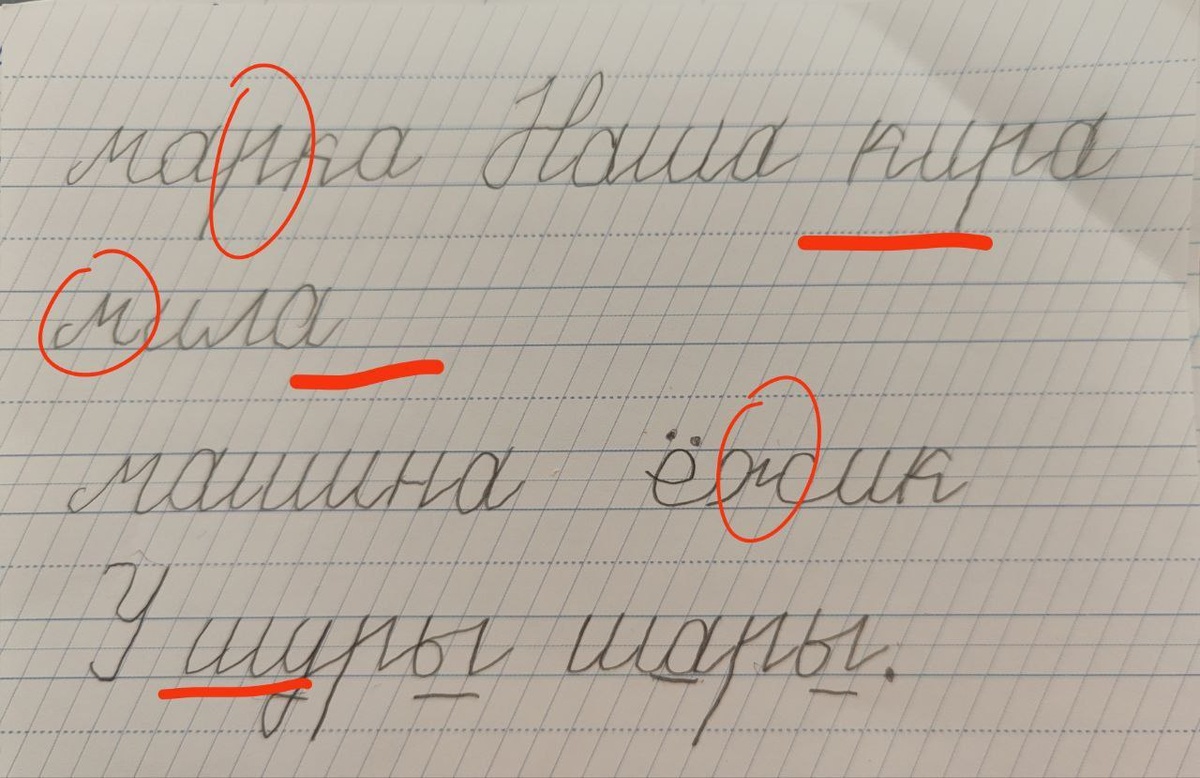 марка Наша кира
мила
машина ёжик
У шуры шары.